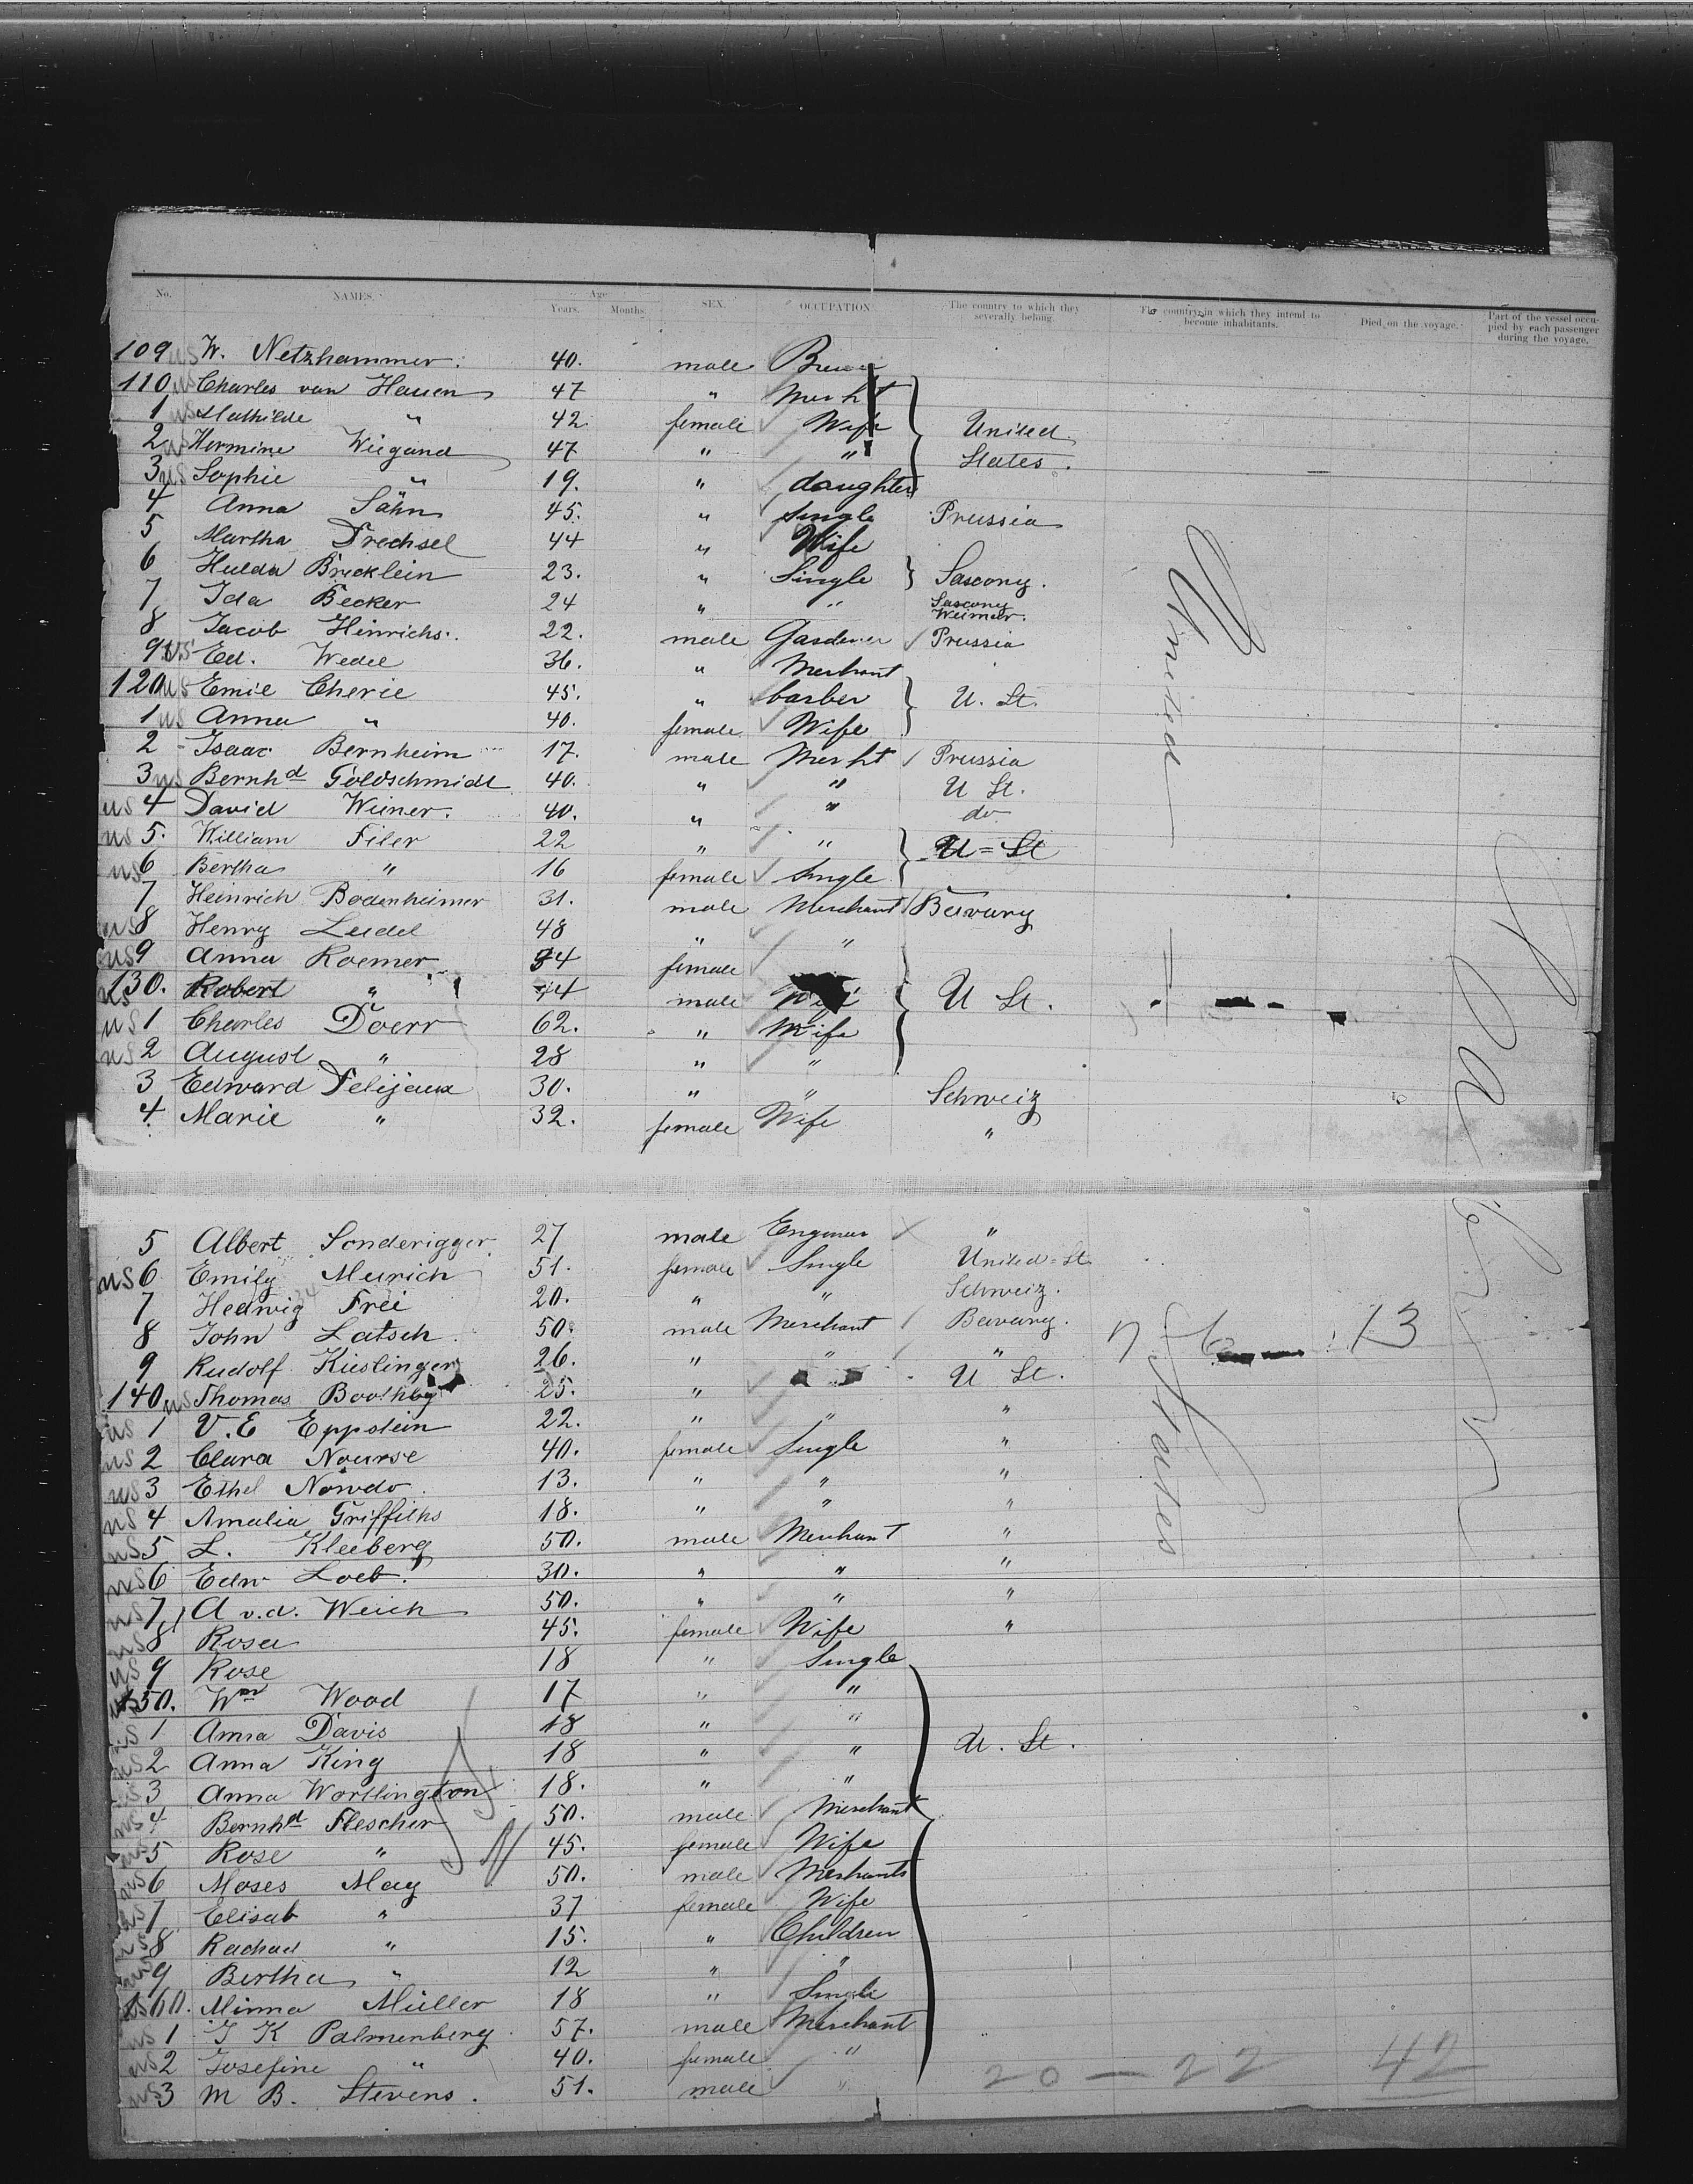 No. NAMES. Age Years. Months. SEX. OCCUPATION The country to which they severally belong. The country in which they intend to become inhabitants. Died on the voyage. Part of the vessel occupied by each passenger during the voyage.
109 US W. Netzhammer. 40. male
110 US Charles van Hauen 47 " Merht
1 US Mathilde " 42 female Wife United
2 US Hermine Wiegand 47 " " States.
3 US Sophie " 19. " daughter
4 Anna Sähn 45. " Single Prussia
5 Martha Drechsel 44 " Wife
6 Hulda Bricklein 23. " Single Saxony.
7 Ida Becker 24 " " Saxony Weimar.
8 Jacob Hinrichs. 22. male Gardener Prussia
9 US Ed. Wedel 36. " Merchant
120 US Emil Cherie 45. " barber U. St.
1 US Anna " 40. female Wife
2 - Isaac Bernheim 17. male Merht Prussia
3 US Bernhd Goldschmidt 40. " " U St.
US 4 David Weiner. 40. " " do
US 5. William Filer 22 " " U=St
US 6 Bertha " 16 female Single
7 Heinrich Bodenheimer 31. male Merchant Bavary
US 8 Henry Leidel 48 " "
US 9 Anna Roemer female
US 130. Robert " male U St.
US 1 Charles Doerr 62. " Wife
US 2 August " 28 " "
3 Edward Delijaux 30. " " Schweiz
4. Marie " 32. female Wife "
5 Albert Sonderigger. 27 male Engineer "
US 6 Emily Meurich 51. female Single United=St.
7 Hedwig Frei 20. " " Schweiz.
8 John Latsch. 50. male Merchant Bavary.
9 Rudolf Kieslinger 26. " " "
140 US Thomas Boothby 25. " U St.
US 1 V. E Eppstein 22. " " "
US 2 Clara Nourse 40. female Single "
US 3 Ethel Nowdo. 13. " " "
US 4 Amalia Griffiths 18. " " "
US 5 L. Kleeberg 50. male Merchant "
US 6 Edw Loeb. 30. " " "
US 7 A v.d. Weich 50. " " "
US 8 Rosa 45. female Wife "
US 9 Rose 18 " Single
150. Wm Wood 17 " "
US 1 Anna Davis 18 " " U. St.
US 2 Anna King 18 " "
US 3 Anna Wortlington 18. " "
US 4 Bernhd Flescher 50. male Merchant
US 5 Rose " 45. female Wife
US 6 Moses May 50. male Merchants
US 7 Elisab " 37 female Wife
US 8 Rachael " 15. " Children
US 9 Bertha " 12 " "
160. Minna Müller 18 " Single
US 1 J K Palmenberg. 57. male Merchant
US 2 Josefine " 40. female "
US 3 M B. Stevens. 51. male "
United
States
13
20 - 22 42